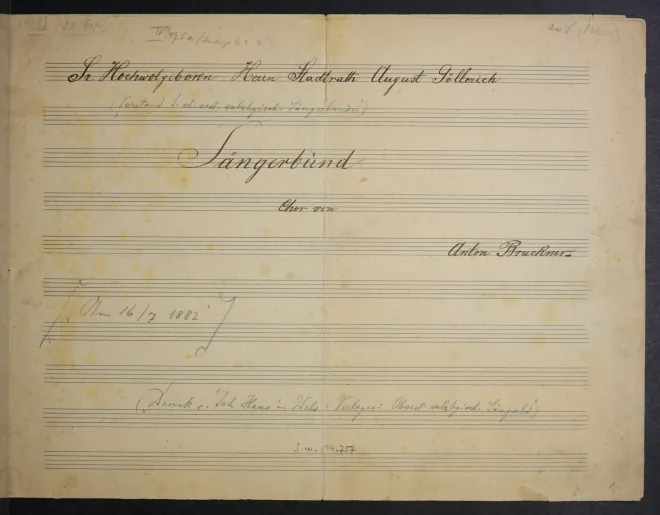 Sr. Hochwolgeboren Herrn Stadtrath August Göllerich.
(Vorstand d. ob. öst. salzbgisch. Sängerbundes)
Sängerbund
Chor von
Anton Bruckner
[Am 16/7 1882]
(Druck v. Joh. Haas in Wels. Verlegers Oberöst. salzbgisch. Sängerbd)
S.m. 19.757
1